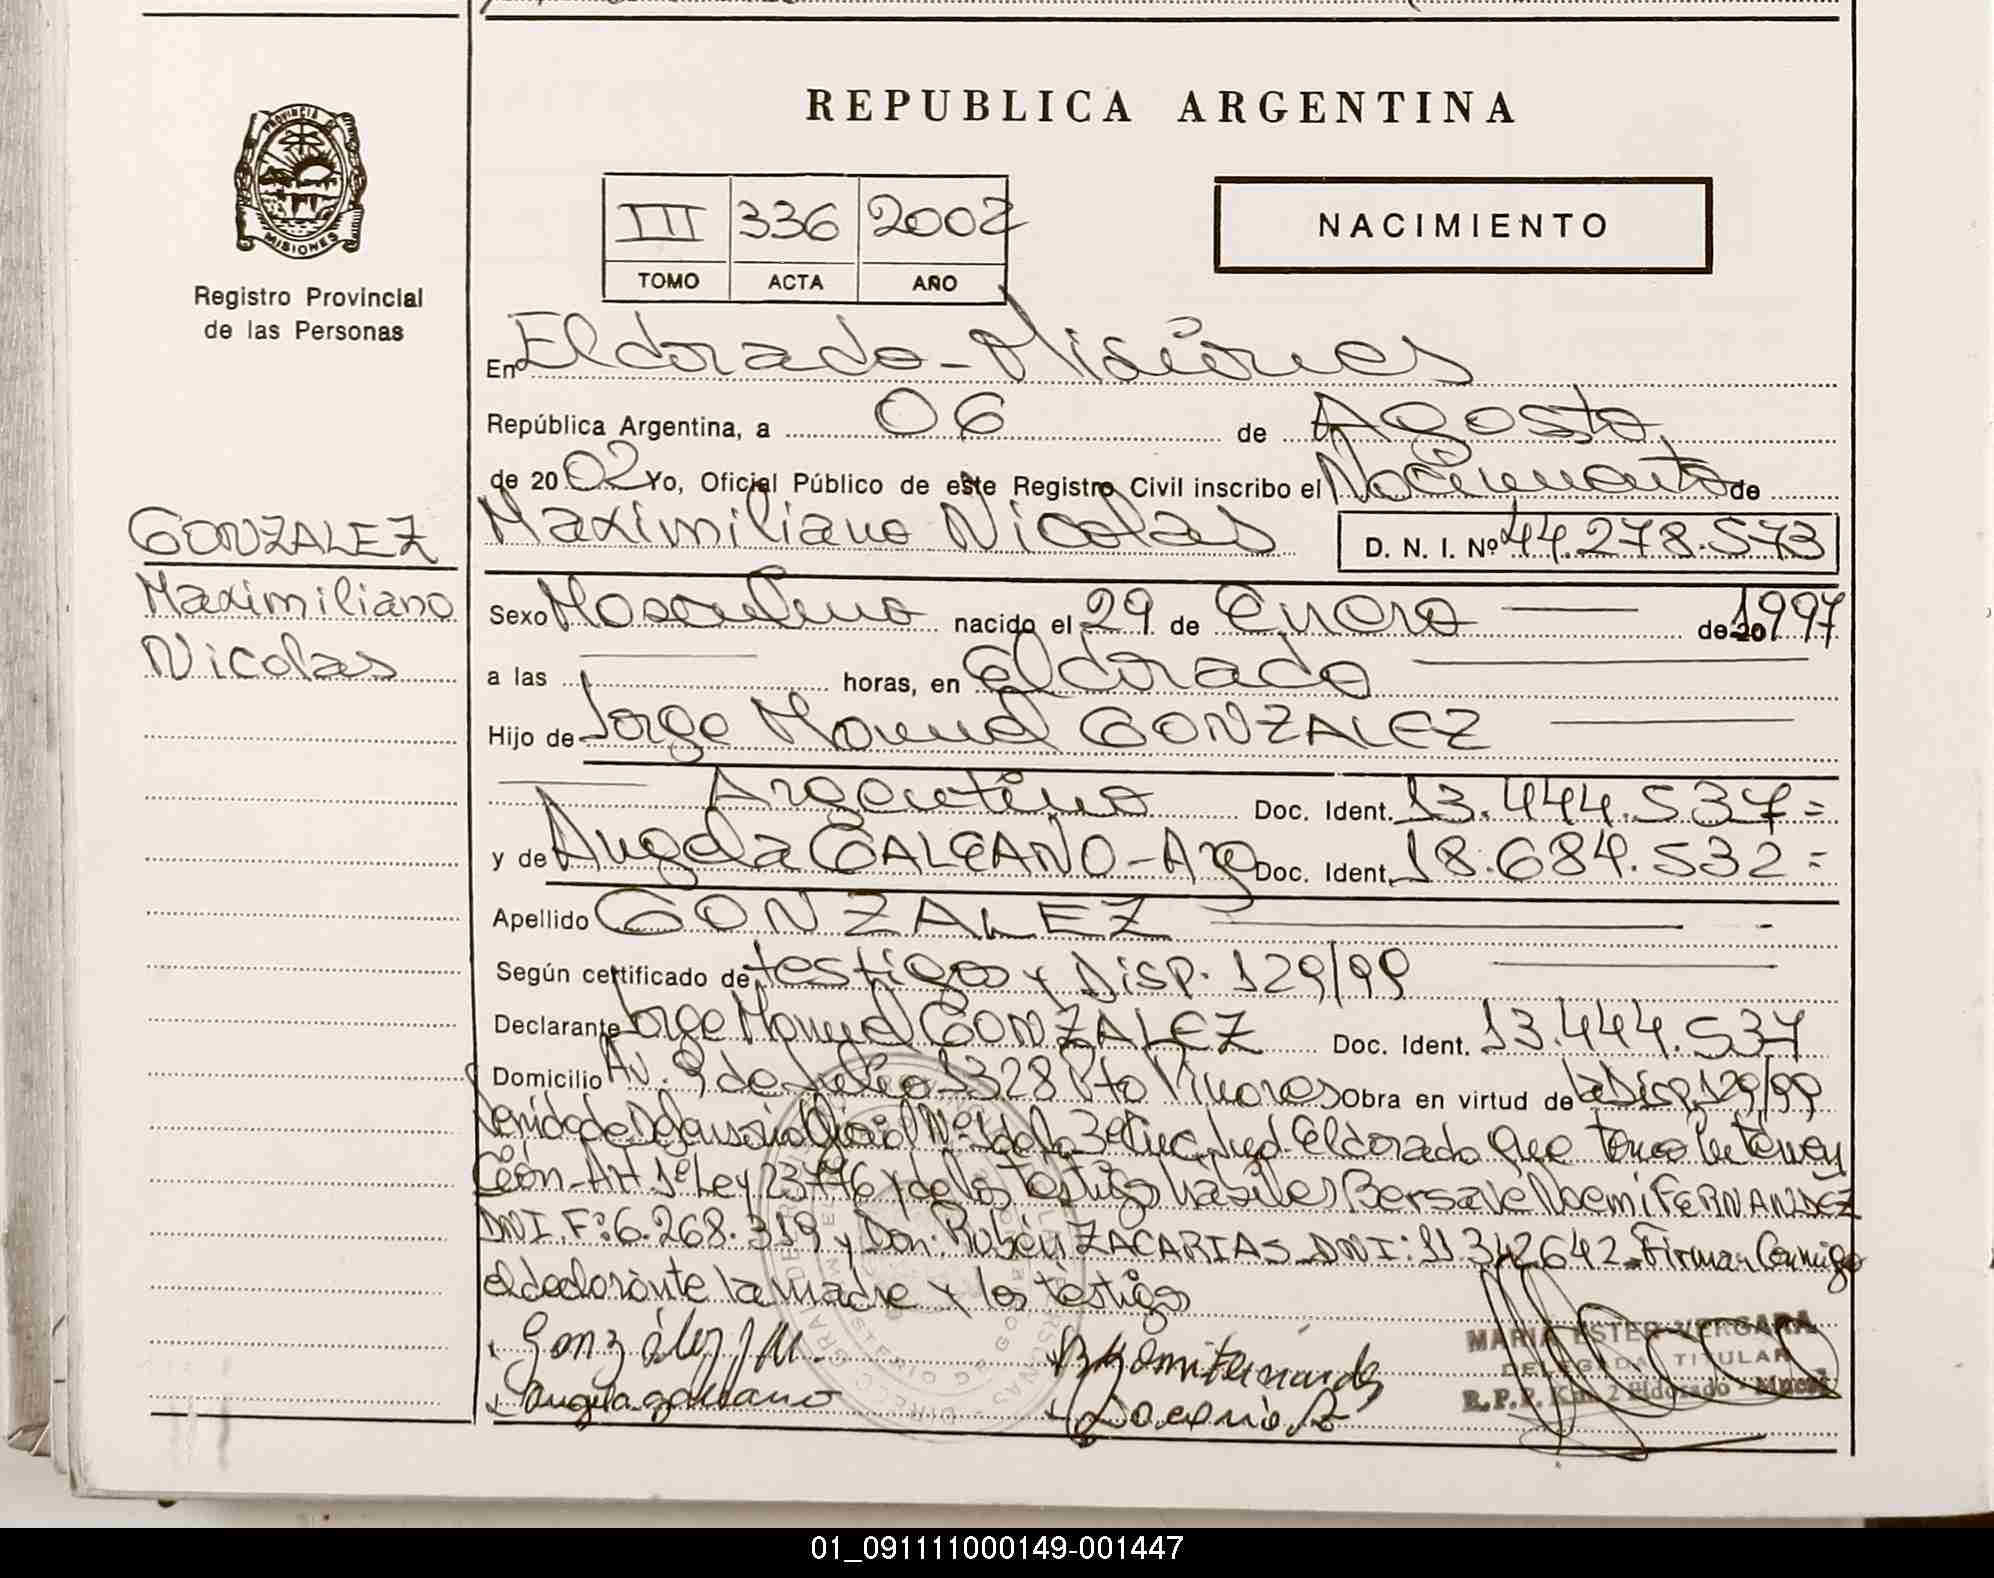 REPUBLICA ARGENTINA
PROVINCIA DE MISIONES
Registro Provincial
de las Personas
III 336 2002
TOMO ACTA AÑO
NACIMIENTO
En Eldorado - Misiones
República Argentina, a 06 de Agosto
de 2002 Yo, Oficial Público de este Registro Civil inscribo el Nacimiento de
GONZALEZ
Maximiliano
Nicolas
Maximiliano Nicolas D. N. I. Nº 44.278.573
Sexo Masculino nacido el 29 de Enero de 20 1997
a las horas, en Eldorado
Hijo de Jorge Manuel GONZALEZ
Argentino Doc. Ident. 13.444.537=
y de Angela GALEANO - Arg Doc. Ident. 18.684.532=
Apellido GONZALEZ
Según certificado de testigos y Disp. 129/99
Declarante Jorge Manuel GONZALEZ Doc. Ident. 13.444.537
Domicilio Av. 9 de Julio 1328 Pto Obra en virtud de la Disp. 129/99
de Defensoria Oficial Nº 1 de la 3º Circ. Jud. Eldorado que tomo interven
ción - Art 1º Ley 23776 y de los testigos hábiles Bersavé Noemi FERNANDEZ
DNI. F: 6.268.319 y Don: Rubén ZACARIAS DNI: 11342642. Firman Conmigo
el declarante la madre y los testigos
González J M.
Angela galeano
MARIA ESTER VERGARA
DELEGADA TITULAR
R.P.P. Km. 2 Eldorado - Mnes.
01_091111000149-001447